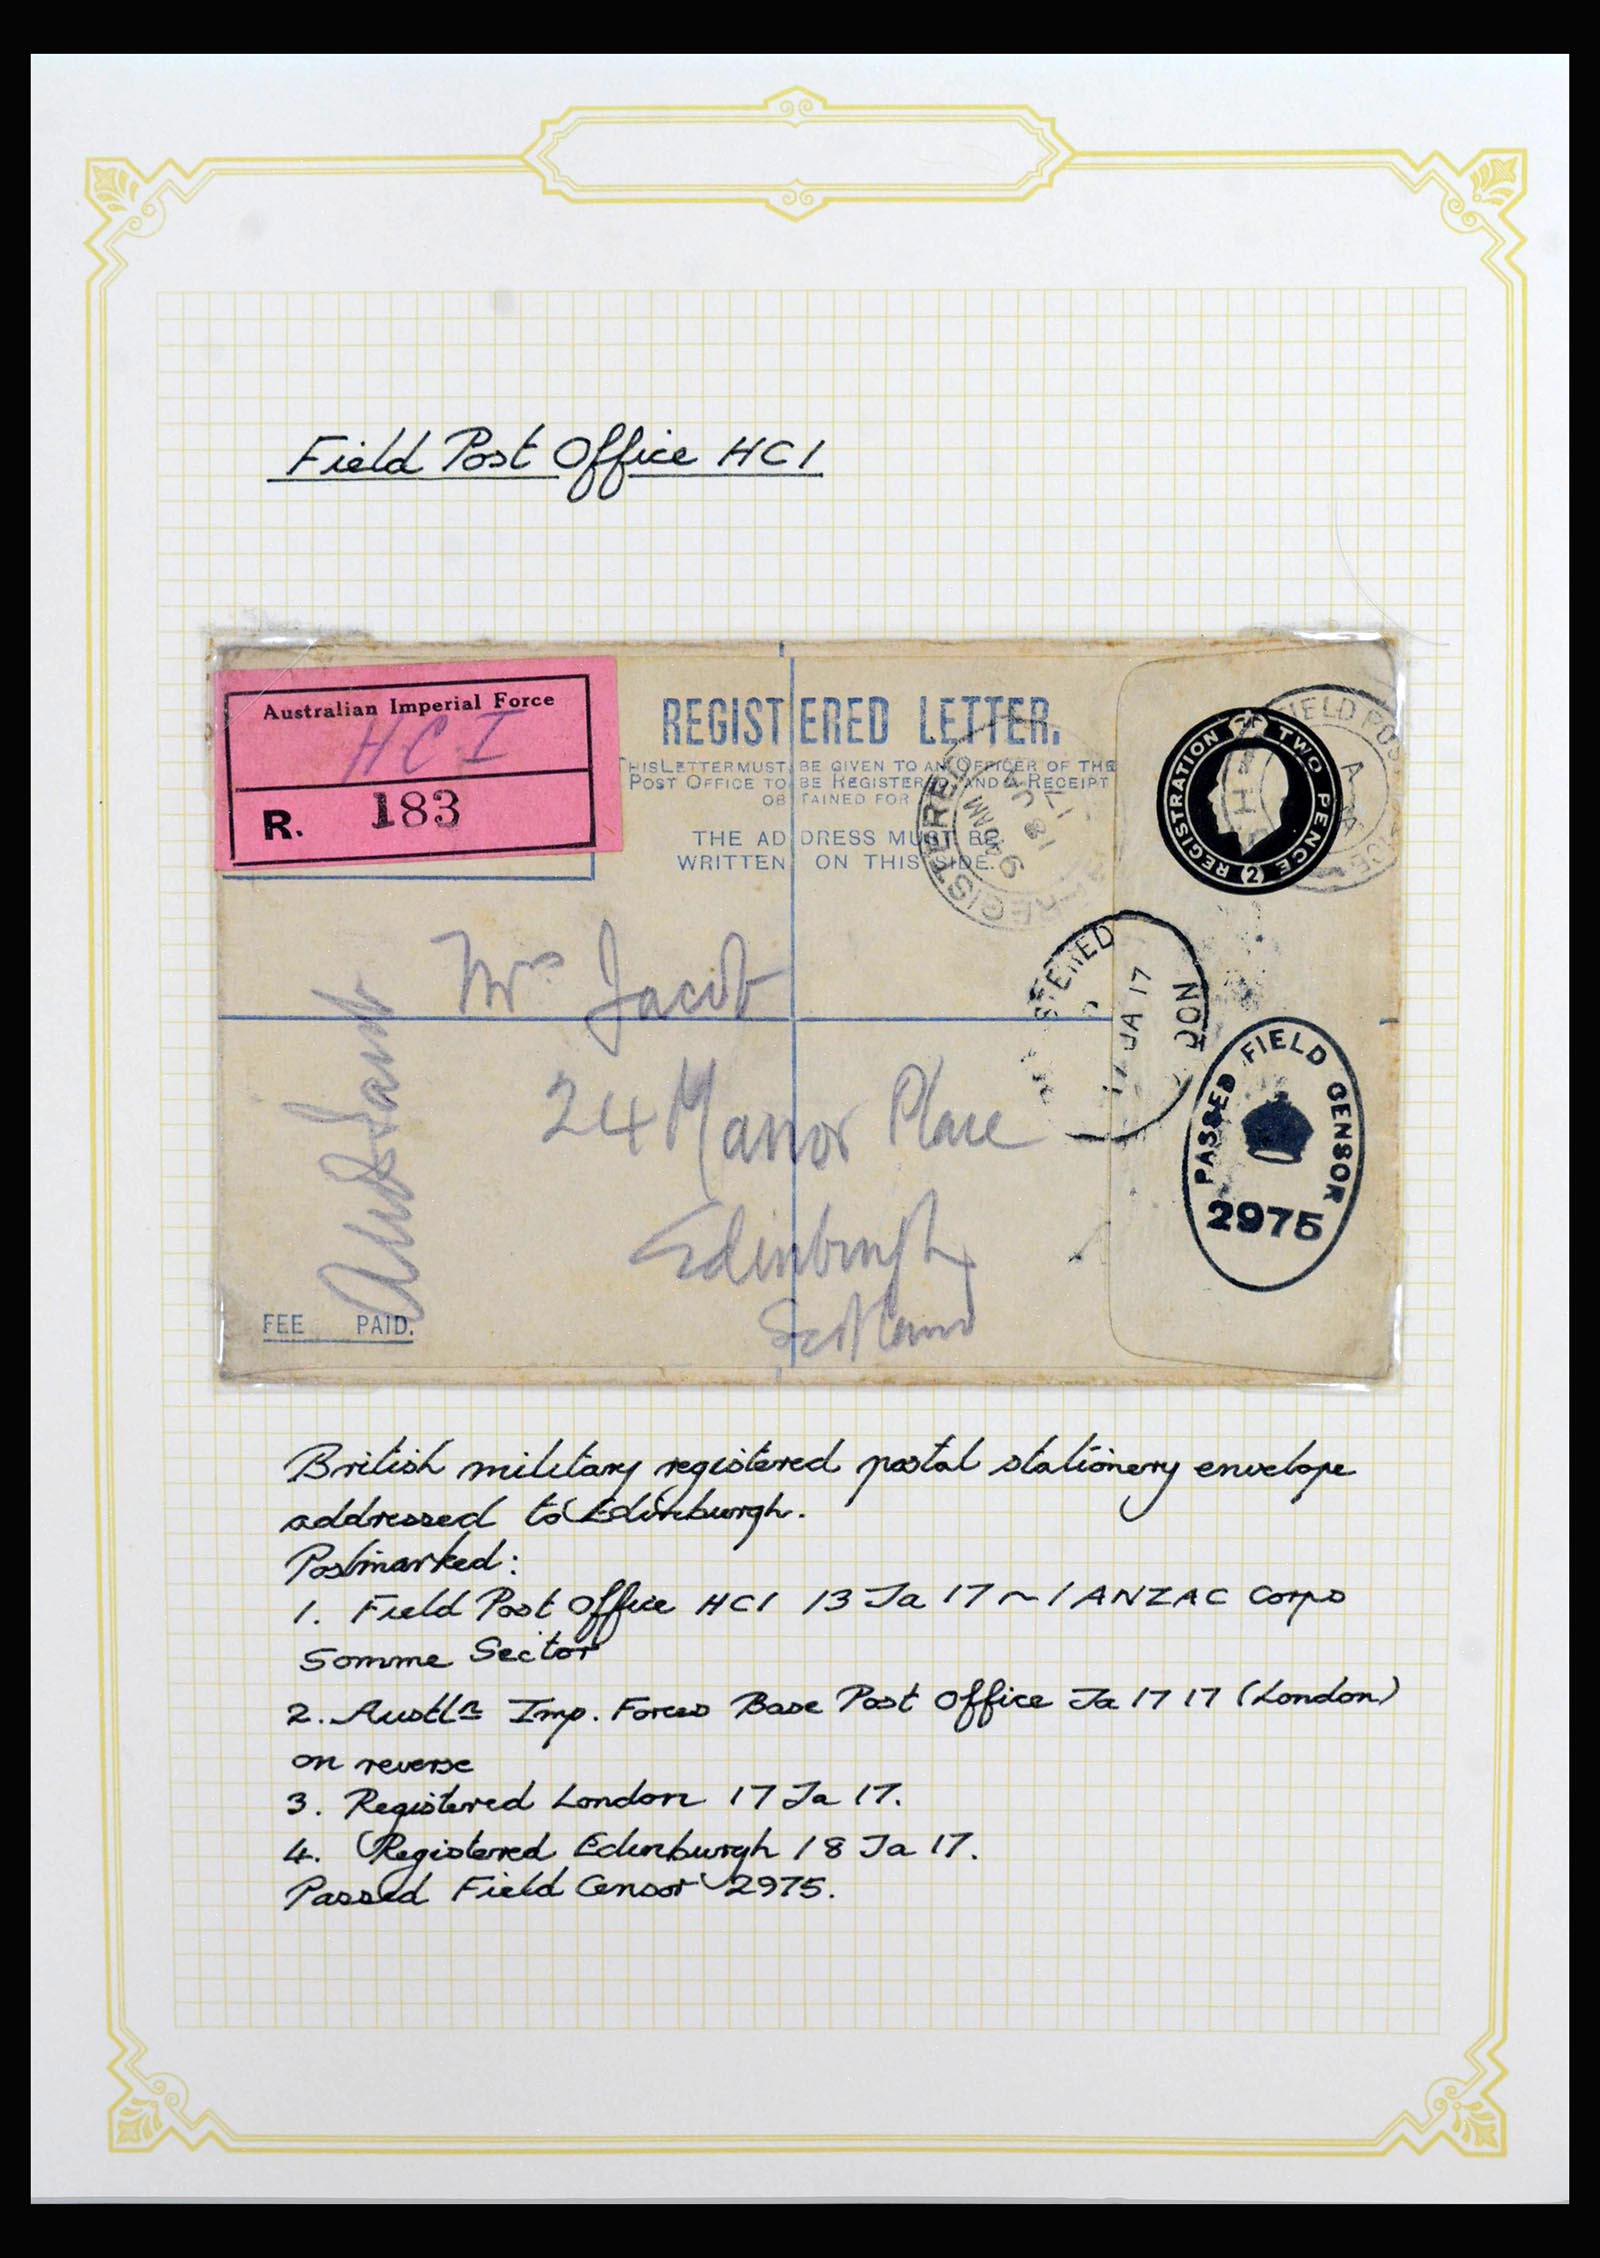 Field Post Office HC1
Australian Imperial Force
HCI
R. 183
REGISTERED LETTER.
THIS LETTER MUST BE GIVEN TO AN OFFICER OF THE
POST OFFICE TO BE REGISTERED, AND A RECEIPT
OBTAINED FOR
THE ADDRESS MUST BE
WRITTEN ON THIS SIDE.
REGISTRATION TWO PENCE (2)
FIELD POST
A
REGISTERED
9 AM
18 JA
17
STERED
17 JA 17
DON
PASSED FIELD CENSOR
2975
Mrs Jacob
24 Manor Place
Edinburgh
Scotland
FEE PAID.
British military registered postal stationery envelope
addressed to Edinburgh.
Postmarked:
1. Field Post Office HC1 13 Ja 17 ~ 1 ANZAC Corps
Somme Sector
2. Austln Imp. Forces Base Post Office Ja 17 17 (London)
on reverse
3. Registered London 17 Ja 17.
4. Registered Edinburgh 18 Ja 17.
Passed Field Censor 2975.